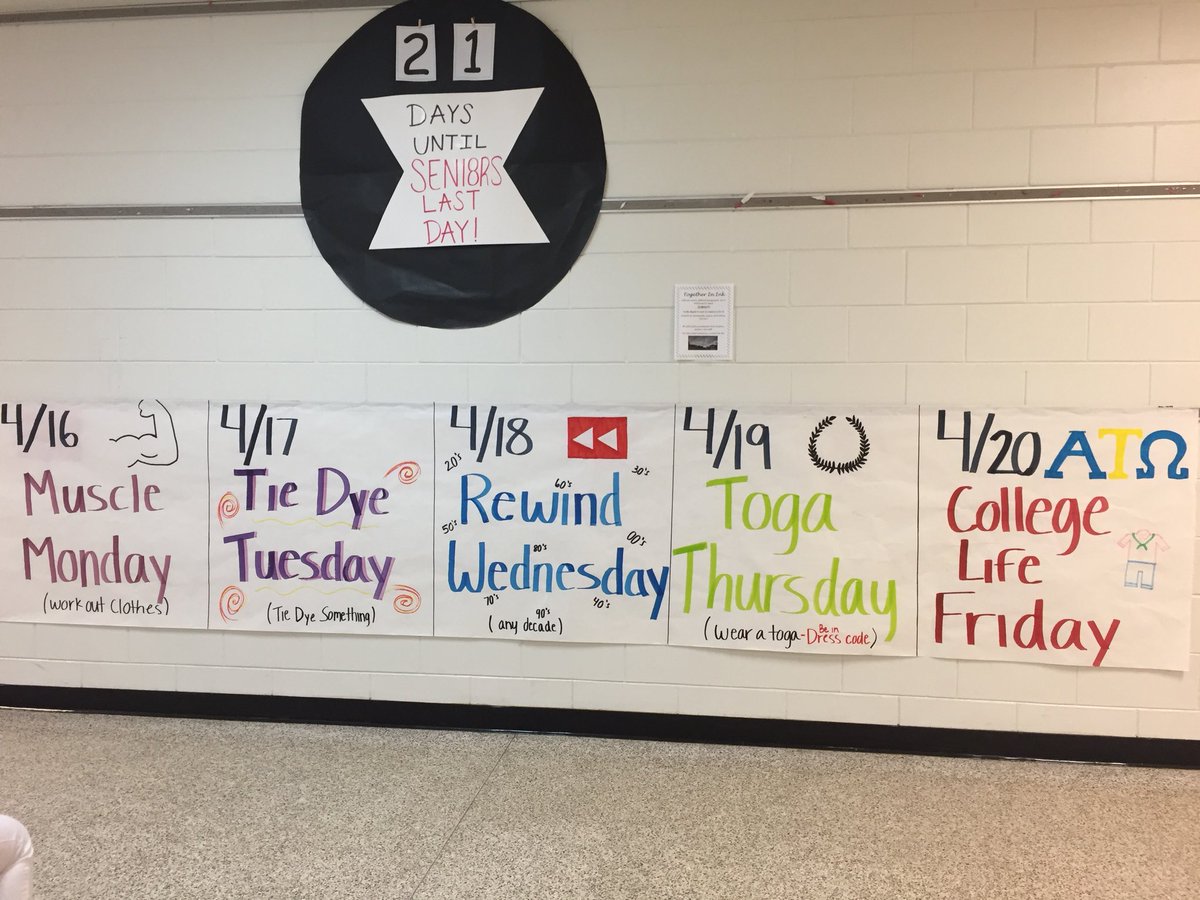 2 1
DAYS
UNTIL
SENI8RS
LAST
DAY!
Together In Ink
4/16
Muscle
Monday
(work out clothes)
4/17
Tie Dye
Tuesday
(Tie Dye Something)
4/18
20's
30's
60's
Rewind
50's
00's
80's
Wednesday
70's
90's
40's
(any decade)
4/19
Toga
Thursday
(wear a toga-Be in Dress code)
4/20 ΑΤΩ
College
Life
Friday